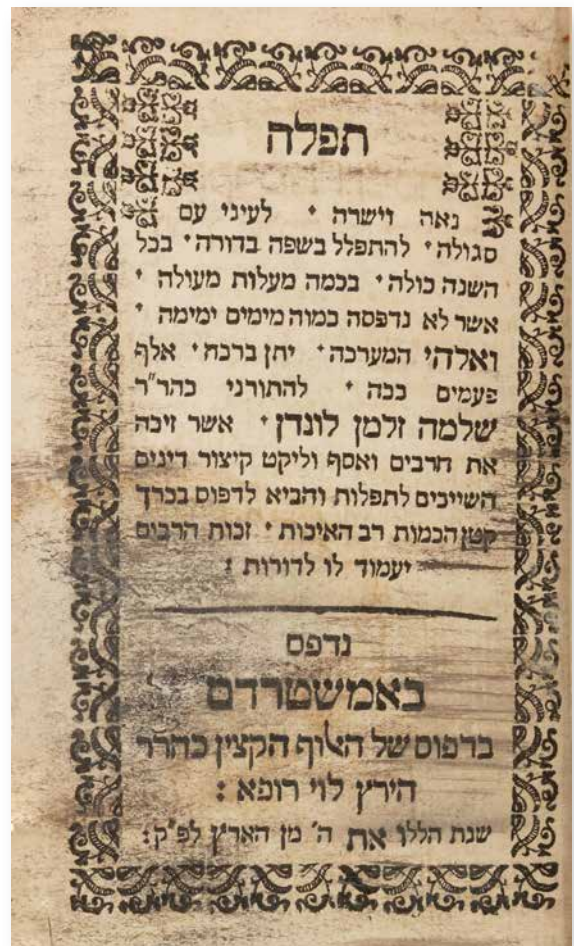 תפלה
נאה וישרה · לעיני עם
סגולה · להתפלל בשפה בדורה · בכל
השנה כולה · בכמה מעלות מעולה ·
אשר לא נדפסה כמוה מימים ימימה ·
ואלהי המערכה · יתן ברכה · אלף
פעמים ככה · להתורני כהר״ר
שלמה זלמן לונדן · אשר זיכה
את הרבים ואסף וליקט קיצור דינים
השייכים לתפלות והביא לדפוס בכרך
קטן הכמות רב האיכות · זכות הרבים
יעמוד לו לדורות :
נדפס
באמשטרדם
בדפוס של האלוף הקצין כהרר
הירץ לוי רופא :
שנת הללו את ה' מן הארץ לפ״ק :